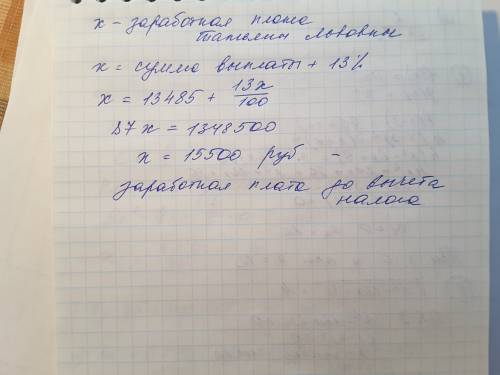 x - заработная плата
Татьяны Львовны
x = сумма выплаты + 13%
x = 13485 + 13x/100
87x = 1348500
x = 15500 руб -
заработная плата до вычета
налога